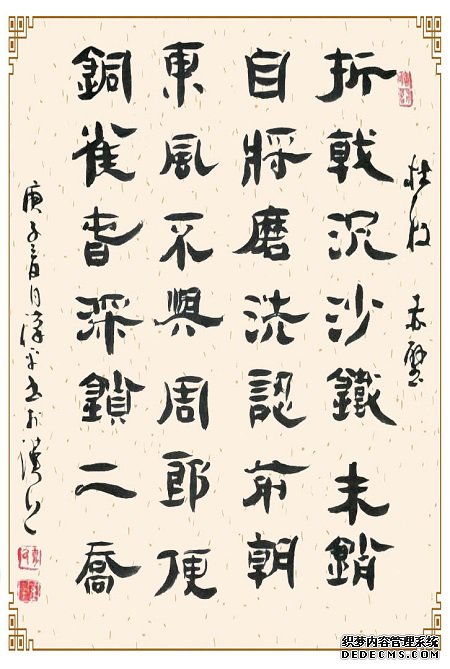 杜牧 赤壁
折戟沉沙鐵未銷
自將磨洗認前朝
東風不與周郎便
銅雀春深鎖二喬
庚子春月
织梦内容管理系统
DEDECMS.COM